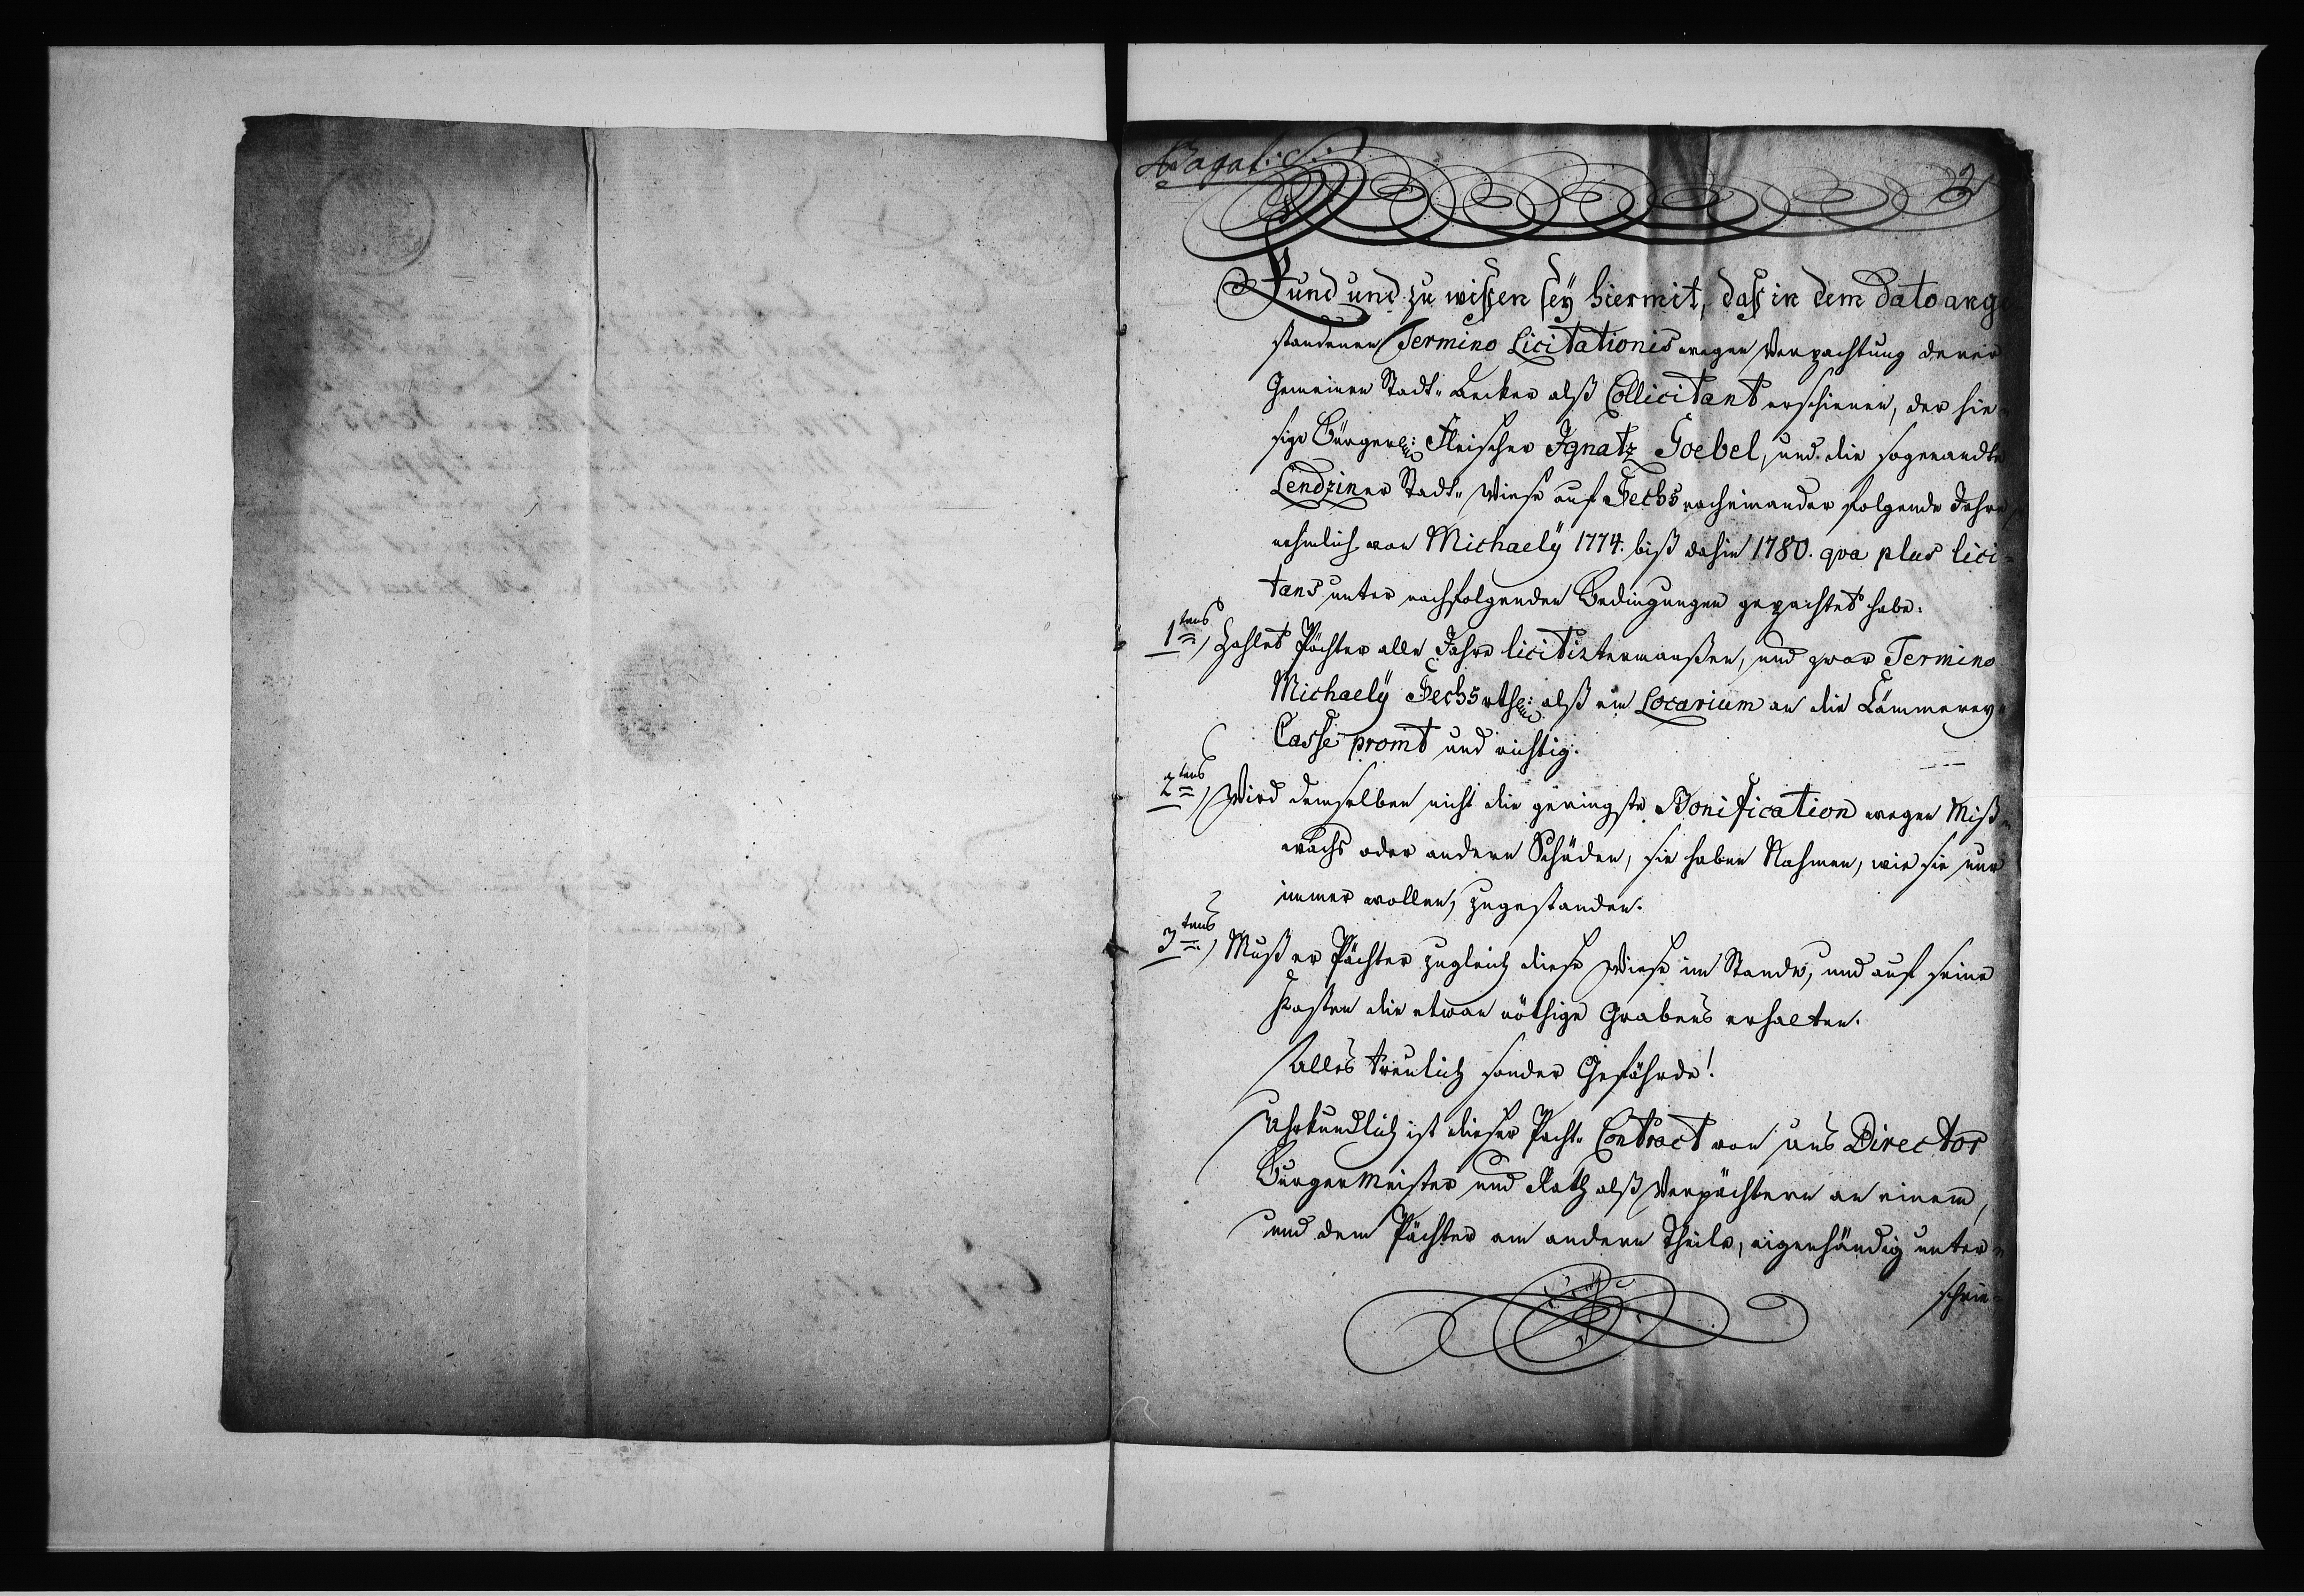 3
Kund und zu wißen seÿ hiermit, daß in dem Dato ange
standenen Termino Licitationis wegen Verpachtung derer
Gemeinen Stadt-Aecker alß Collicitant erschienen, der hie-
sige Bürgerl: Fleischer Ignatz Goebel, und die sogenandte
Lendziner Stadt-Wiese auf Sechs nacheinander folgende Jahre
nehmlich von Michaelÿ 1774. biß dahin 1780. qva plus lici-
tans unter nachfolgenden Bedingungen gepachtet habe:
1tens, Zahlet Pächter alle Jahre licitirtermaußen, und zwar Termino
Michaelÿ Sechs rthl: alß ein Locarium an die Cämmereÿ-
Casse promt und richtig.
2tens, Wird demselben nicht die geringste Bonification wegen Miß-
wachs oder andern Schäden, sie haben Nahmen, wie sie nur
immer wollen, zugestanden.
3tens, Muß er Pächter zugleich diese Wiese im Stande, und auf seine
Kosten die etwan nöthige Grabens erhalten.
Alles treulich sonder Gefährde!
Uhrkundlich ist dieser Pacht-Contract von uns Director
Burgermeister und Rath alß Verpächtern an einem,
und dem Pächter am andern Theile, eigenhändig unter-
schrie-